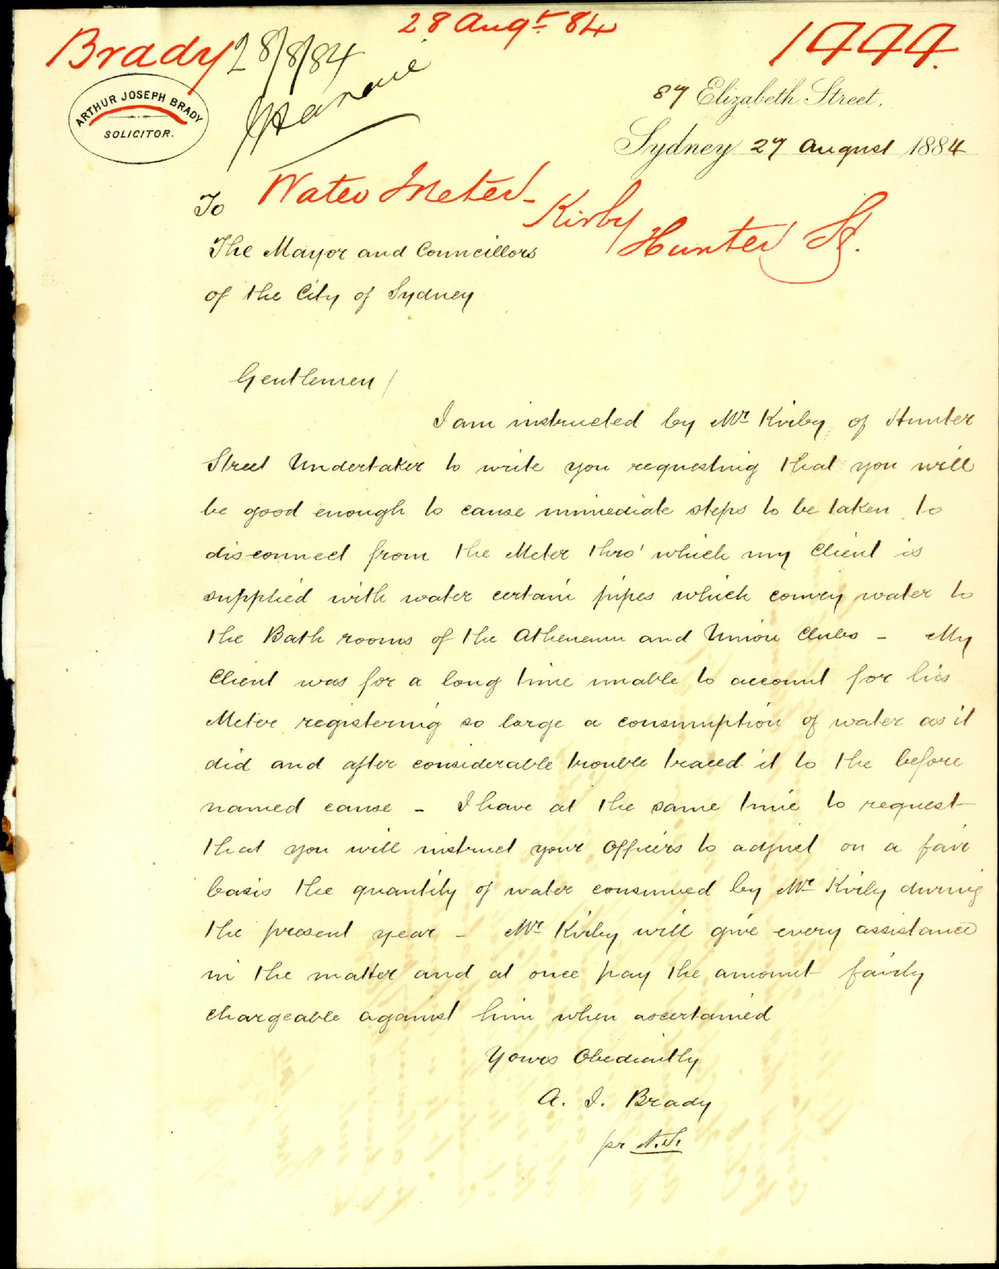 Brady
28/8/84
28 Augt. 84
1999.
ARTHUR JOSEPH BRADY
SOLICITOR.
87 Elizabeth Street.
Sydney 27 August 1884
To
Water Meter -
Kirby
Hunter St.
The Mayor and Councillors
of the City of Sydney
Gentlemen /
I am instructed by Mr Kirby of Hunter
Street Undertaker to write you requesting that you will
be good enough to cause immediate steps to be taken to
disconnect from the Meter thro' which my Client is
supplied with water certain pipes which convey water to
the Bath rooms of the Atheneum and Union Clubs - My
Client was for a long time unable to account for his
Meter registering so large a consumption of water as it
did and after considerable trouble traced it to the before
named cause - I have at the same time to request
that you will instruct your Officers to adjust on a fair
basis the quantity of water consumed by Mr Kirby during
the present year - Mr Kirby will give every assistance
in the matter and at once pay the amount fairly
chargeable against him when ascertained
Yours Obediently
A. J. Brady
pr